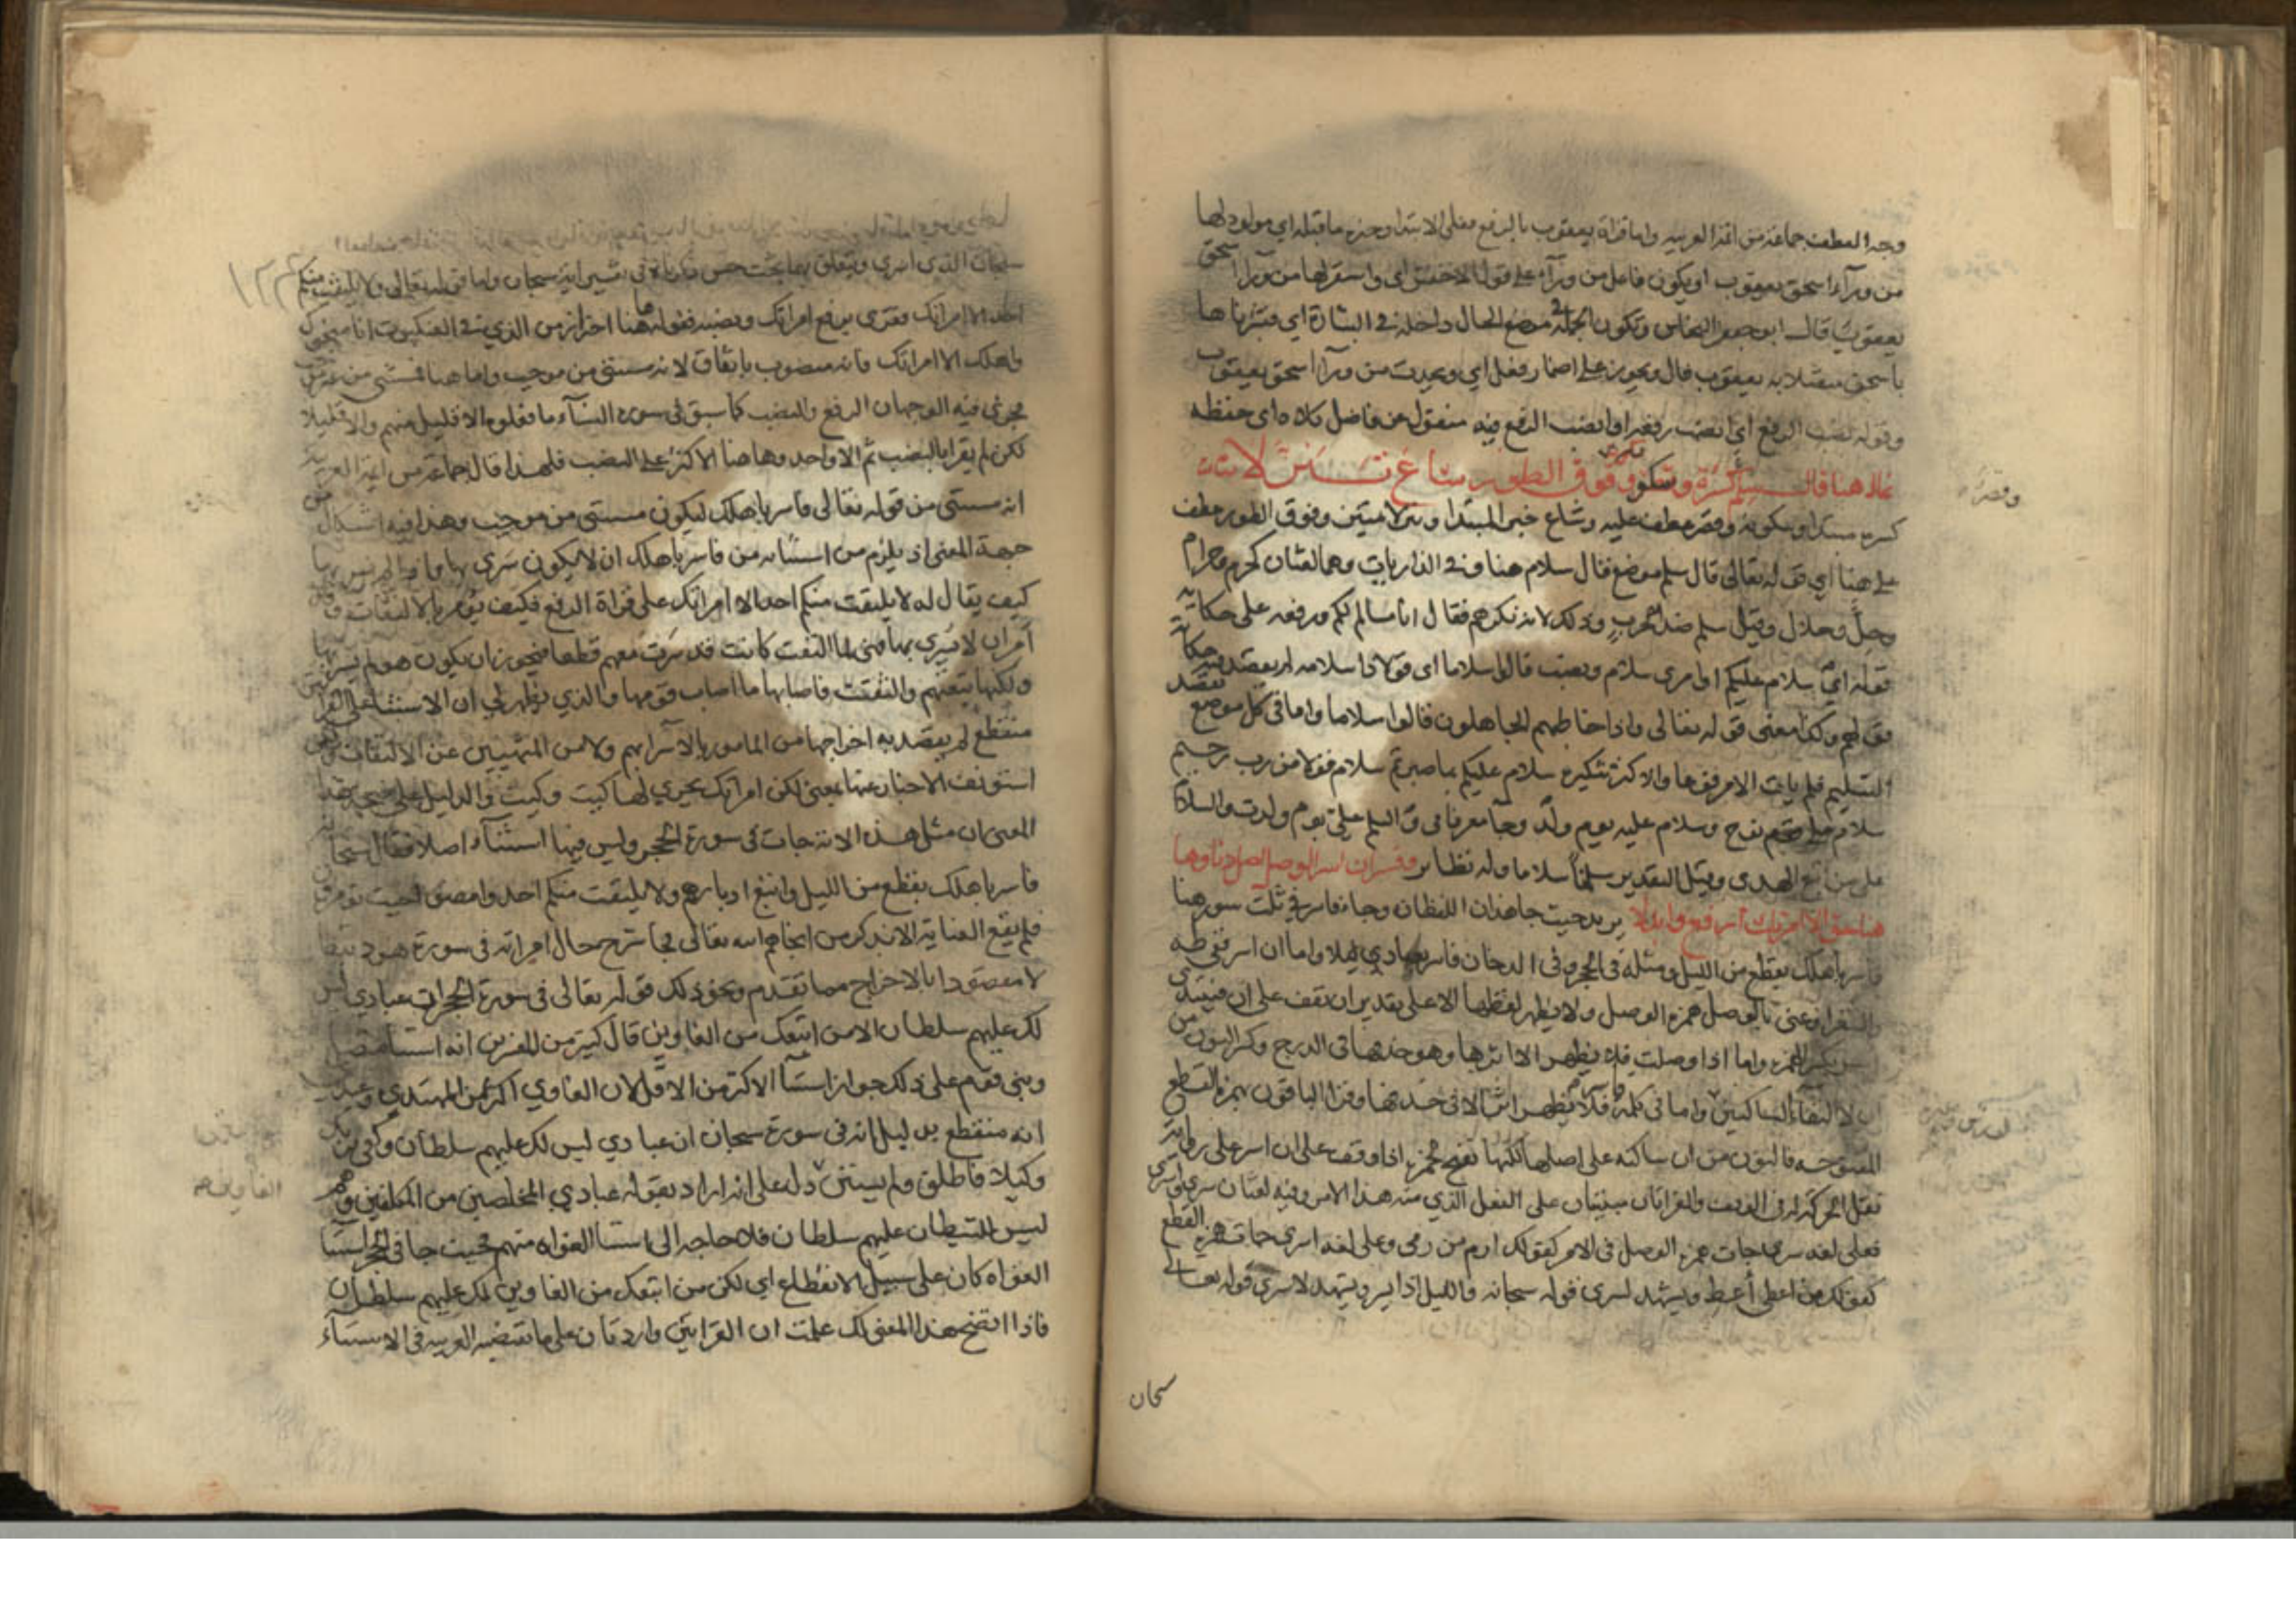 وجه العطف جماعة من ائمة العربيه واما قراة يعقوب بالرفع فعلى الابتدا وخبره ما قبله اي مولود لها
من ورآء اسحق يعقوب او يكون فاعل من ورآء على قول الاخفش اى واستقر لها من ورآ اسحق
يعقوب قال ابو جعفر النحاس وتكون الجملة في موضع الحال داخلة في البشارة اي فبشرناها
باسحق متصلا به يعقوب قال ويجوز على اضمار فعل اي ويحدث من ورآ اسحق يعقوب
وقوله نصب الرفع اي نصب رفعه او انصب الرفع فيه منقول عن فاضل كلاه اى حفظه
هنا قال سلم كسره وسكونه وقصر وفوق الطور شاع تنزلا
كسره مبتدا وسكونه وقصر عطف عليه وشاع خبر المبتدا وتنزلا تمييز وفوق الطور عطف
على هنا اي قوله تعالى قال سلم موضع قال سلام هنا وفي الذاريات وهما لغتان كحرم وحرام
وحل وحلال وقيل سلم ضد الحرب وذلك لانه نكرهم فقال انا مسالم لكم ورفعه على حكاية
قوله اي سلام عليكم او امري سلام ونصب قالوا سلاما اى قولا ذا سلامه لم يقصد فيه حكاية
قولهم وكذا معنى قوله تعالى واذا خاطبهم الجاهلون قالوا سلاما واما في كل موضع نقصد
التسليم فلم يات الامر فوعا والاكثر تنكيره سلام عليكم بما صبرتم سلام قولا من رب رحيم
سلام على نوح وسلام عليه يوم ولد وجآ معرفا في والسلم علي يوم ولدت والسلام
على من اتبع الهدى وقيل التقدير سلمنا سلاما وله نظاير وفاسر ان اسر الوصل اصل دنا وها
هنا حق الا امراتك ارفع وابدلا يريد حيث جا هذان اللفظان وجا فاسر في ثلث سور هنا
فاسر باهلك بقطع من الليل ومثله في الحجر وفى الدخان فاسر بعبادي ليلا واما ان اسر ففي طه
والشعرا وعنى بالوصل همزه الوصل ولا يظهر لفظها الا على تقدير ان تقف على ان فتبتدى
اسر بكسر الهمزه واما اذا وصلت فلا يظهر الا اثرها وهو حذفها في الدرج وكسر النون من
ان لالتقاء الساكنين واما في كلمة فاسر فلا يظهر اثر الا في حذفها وقرا الباقون بهمزة القطع
المفتوحه فالنون من ان ساكنه على اصلها لكنها تفتح لحمزه اذا وقف على ان اسر على رواية
نقل الحركة له في الوقف والقراتان مبنيتان على الفعل الذي منه هذا الامر وفيه لغتان سرى واسرى
فعلى لغه سرى جات همزه الوصل في الامر كقولك ارم من رمى وعلى لغه اسرى جات همزه القطع
كقولك من اعطى أعط ويشهد لسرى قوله سبحانه والليل اذا يسر ويشهد لاسرى قوله تعالى
سبحان
وقصره
سبحان الذى اسرى ويتعلق بهذا بحث حسن ذكرناه في تفسير اية سبحان واما قوله تعالى ولا يلتفت منكم
احد الا امراتك فقرى برفع امراتك ونصبه فقوله ها هنا احتراز من الذي في العنكبوت انا منجوك
واهلك الا امراتك فانه منصوب باتفاق لانه مستثنى من موجب واما هنا فمستثنى من غير موجب
فجرى فيه الوجهان الرفع والنصب كما سبق في سورة النسآء ما فعلوه الا قليل منهم والا قليلا
لكن لم يقرا بالنصب ثم الا واحد وها هنا الاكثر على النصب فلهذا قال جماعة من ايمة العربية
انه مستثنى من قوله تعالى فاسر باهلك ليكون مستثنى من موجب وهذا فيه اشكال من
جهة المعنى اذ يلزم من استثنائه من فاسر باهلك ان لا يكون سرى بها واذا لم يسر بها
كيف يقال له لا يلتفت منكم احد الا امراتك على قراة الرفع فكيف يؤمر بالالتفات وقد
امر ان لا يسري بها فهي لما التفت كانت قد سرت معهم قطعا فيجوز ان يكون هو لم يسر بها
ولكنها تبعتهم والتفتت فاصابها ما اصاب قومها والذي يظهر لي ان الاستثنا على القراتين
منقطع لم يقصد به اخراجها من المامور بالاسرا بهم ولا من المنهيين عن الالتفات ولكن
استونف الاخبار عنها بمعنى لكن امراتك يجري لها كيت وكيت والدليل على صحة هذا
المعنى ان مثل هذه الاية جات في سورة الحجر وليس فيها استثنآء اصلا فقال سبحانه
فاسر باهلك بقطع من الليل واتبع ادبارهم ولا يلتفت منكم احد وامضوا حيث تومرون
فلم يقع العناية الا بذكر من انجاهم الله تعالى فجا شرح حال امراته في سورة هود تبعا
لا مقصودا بالاخراج مما تقدم ونحو ذلك قوله تعالى في سورة الحجر ان عبادي ليس
لك عليهم سلطان الا من اتبعك من الغاوين قال كثير من المفسرين انه استثنا متصل
وبنى قوم على ذلك جواز استثنآ الاكثر من الاقل لان الغاوي اكثر من المهتدي وعندي
انه منقطع بدليل انه في سورة سبحان ان عبادي ليس لك عليهم سلطان وكفى بربك
وكيلا فاطلق ولم يستثن دل على انه اراد بقوله عبادي المخلصين من المكلفين وهم
ليس للشيطان عليهم سلطان فلا حاجه الى استثنا الغواه منهم فحيث جا في الحجر استثنا
الغواه كان على سبيل الانقطاع اي لكن من اتبعك من الغاوين لك عليهم سلطان
فاذا اتضح هذا المعنى لك علمت ان القراتين واردتان على ما تقتضيه العربيه في الاستثنآء